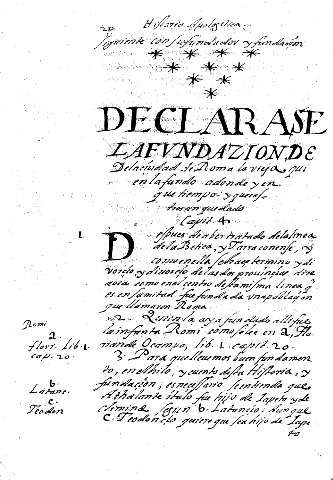 Historia Apologetica
siguiente con su fundador y fundacion
DECLARASE
LA FVNDAZION DE
De la ciudad de Roma la vieja qui
en la fundo adonde y en
que tiempo y
Capit. 4.
1.
Despues de aber tratado de la linea
de la Betica, y Tarraconense, y
como en ella se haze termino y di
vorcio y divorsio de las dos provincias dire
aora como en el centro de la misma linea
es en su mitad fue fundada una poblaçon
que llamaron Roma
2. Quien la aya fundado alli fue
la infanta Romi como se lee en a, Flo
rian de Ocampo, lib. 1. capit. 20.
3. Para que llevemos buen fundamen
to, en el hilo, y cuento desta Historia, y
fundacion; es nessario sentando que
Athalante italo fue hijo de Iapeto y de
climine segun b. Latancio: aunque
C. Teodoncio quiere que sea hijo de Iape
to
Romi
a
florr. lib. 1.
cap. 20.
b
Latanc.
c.
Teodon